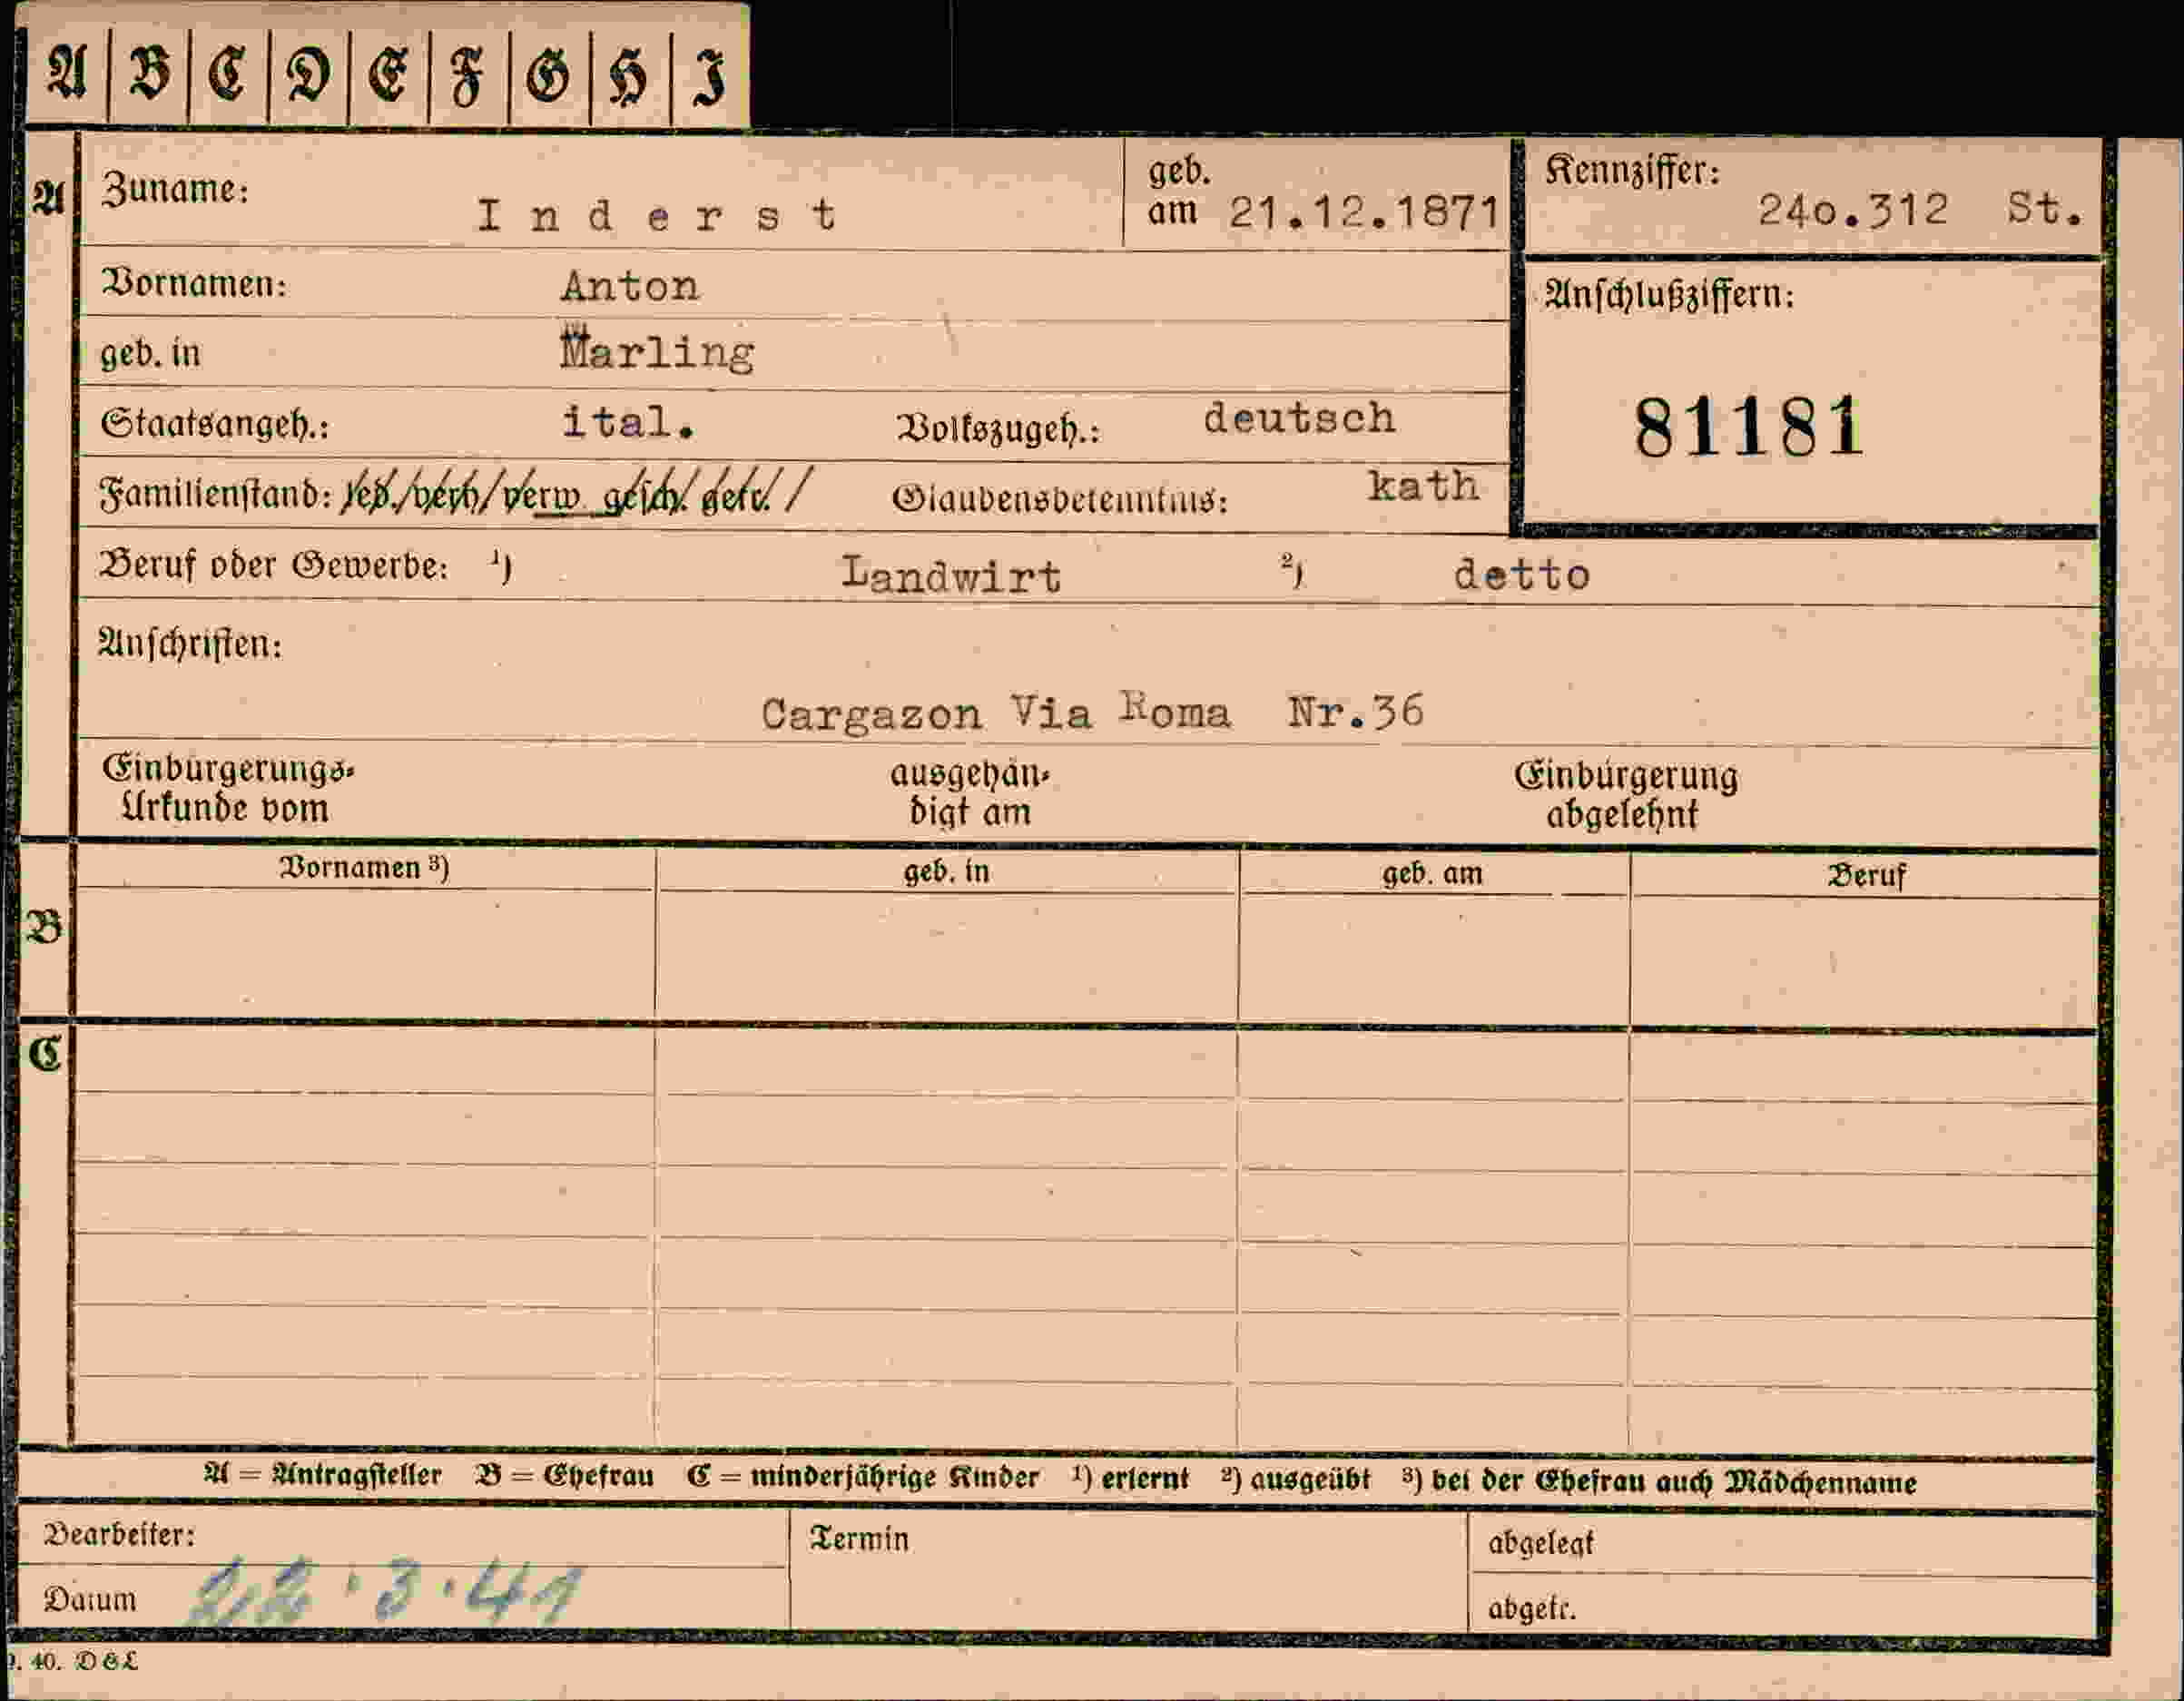 A B C D E F G H I
A Zuname: Inderst geb. am 21.12.1871 Kennziffer: 24o.312 St.
Vornamen: Anton
Anschlußziffern:
geb. in Marling
81181
Staatsangeh.: ital. Volkszugeh.: deutsch
Familienstand: led./verh/verw. gesch. getr. Glaubensbekenntnis: kath
Beruf oder Gewerbe: ¹) Landwirt ²) detto
Anschriften:
Cargazon Via Roma Nr.36
Einbürgerungs- ausgehän- Einbürgerung
Urkunde vom digt am abgelehnt
Vornamen ³) geb. in geb. am Beruf
B
C
A = Antragsteller B = Ehefrau C = minderjährige Kinder ¹) erlernt ²) ausgeübt ³) bei der Ehefrau auch Mädchenname
Bearbeiter: Termin abgelegt
Datum 22.3.41 abgetr.
. 40. D & L